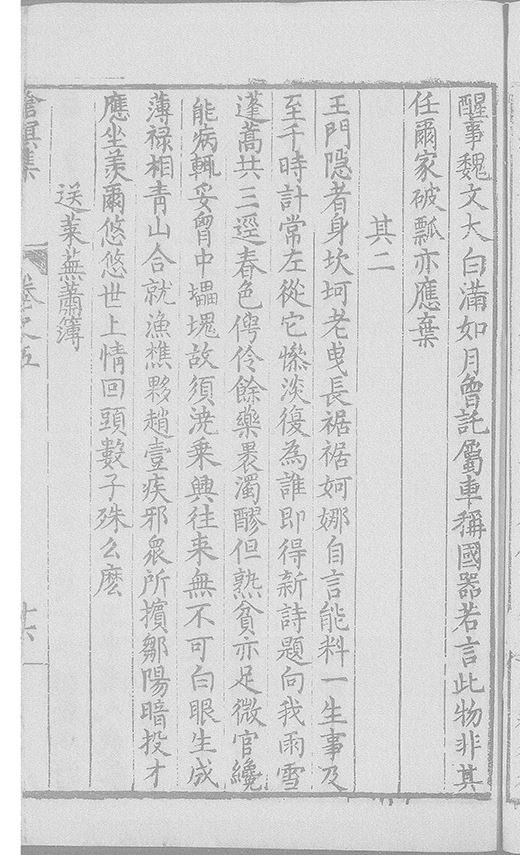 醒事魏文大白滿如月曾託屬車稱國器若言此物非其
任爾家破瓢亦應棄
其二
王門隱者身坎坷老曳長裾裾妸娜自言能料一生事及
至千時計常左從它慘淡復為誰即得新詩題向我雨雪
蓬蒿共三逕春色俜伶餘藥褁濁醪但熟貧亦足微官纔
能病輒妥胷中壘塊故須澆乗興往来無不可白眼生成
薄禄相青山合就漁樵夥趙壹疾邪衆所擯鄒陽暗投才
應坐羨爾悠悠世上情回頭數子殊么麽
送萊蕪蕭簿
滄溟集 卷之五 十六